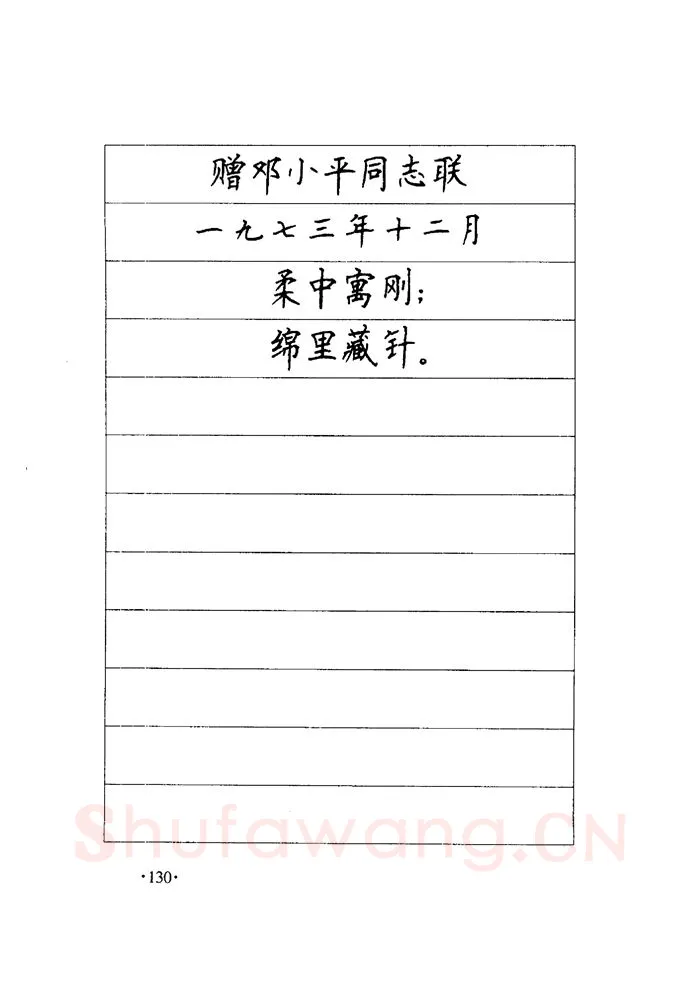 赠邓小平同志联
一九七三年十二月
柔中寓刚；
绵里藏针。
Shufawang.CN
·130·